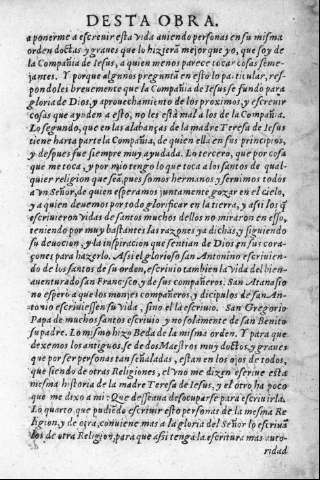 DESTA OBRA.
a ponerme a escreuir esta vida auiendo personas en su misma
orden doctas y graues que lo hizierã mejor que yo, que soy de
la Compañia de Iesus, a quien menos parece tocar cosas seme-
jantes. Y porque algunos preguntã en esto lo particular, res-
pondoles breuemente que la Compañia de Iesus se fundo para
gloria de Dios, y aprouechamiento de los proximos, y escreuir
cosas que ayuden a esto, no les està mal a los de la Compañia.
Lo segundo, que en las alabanças de la madre Teresa de Iesus
tiene harta parte la Compañia, de quien ella en sus principios,
y despues fue siempre muy ayudada. Lo tercero, que por cosa
que me toca, y por mio tengo lo que toca a los santos de qual-
quier religion que seã, pues somos hermanos y seruimos todos
a vn Señor, de quien esperamos juntamente gozar en el cielo,
y a quien deuemos por todo glorificar en la tierra, y assi los q̃
escriuieron vidas de santos muchos dellos no miraron en esso,
teniendo por muy bastantes las razones ya dichas, y siguiendo
su deuocion, y la inspiracion que sentian de Dios en sus cora-
çones para hazerlo. Assi el glorioso san Antonino escriuien-
do de los santos de su orden, escriuio tambien la vida del bien-
auenturado san Francisco, y de sus compañeros. San Atanasio
no esperò a que los monjes compañeros, y dicipulos de san An-
tonio escriuiessen su vida, sino el la escriuio. San Gregorio
Papa de muchos santos escriuio y no solamente de san Benito
su padre. Lo mismo hizo Beda de la misma orden. Y para que
dexemos los antiguos, se de dos Maestros muy doctos, y graues
que por ser personas tan señaladas, estan en los ojos de todos,
que siendo de otras Religiones, el vno me dizen escriue esta
mesma historia de la madre Teresa de Iesus, y el otro ha poco
que me dixo a mi: Que desseaua desocuparse para escriuirla.
Lo quarto, que pudiẽdo escriuir esto personas de la mesma Re
ligion, y de otra, conuiene mas a la gloria del Señor lo escriuã
los de otra Religion, para que assi tenga la escritura mas auto-
ridad